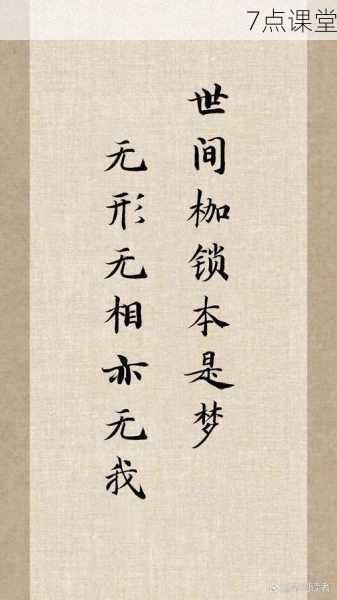 7点课堂
世间枷锁本是梦
无形无相亦无我